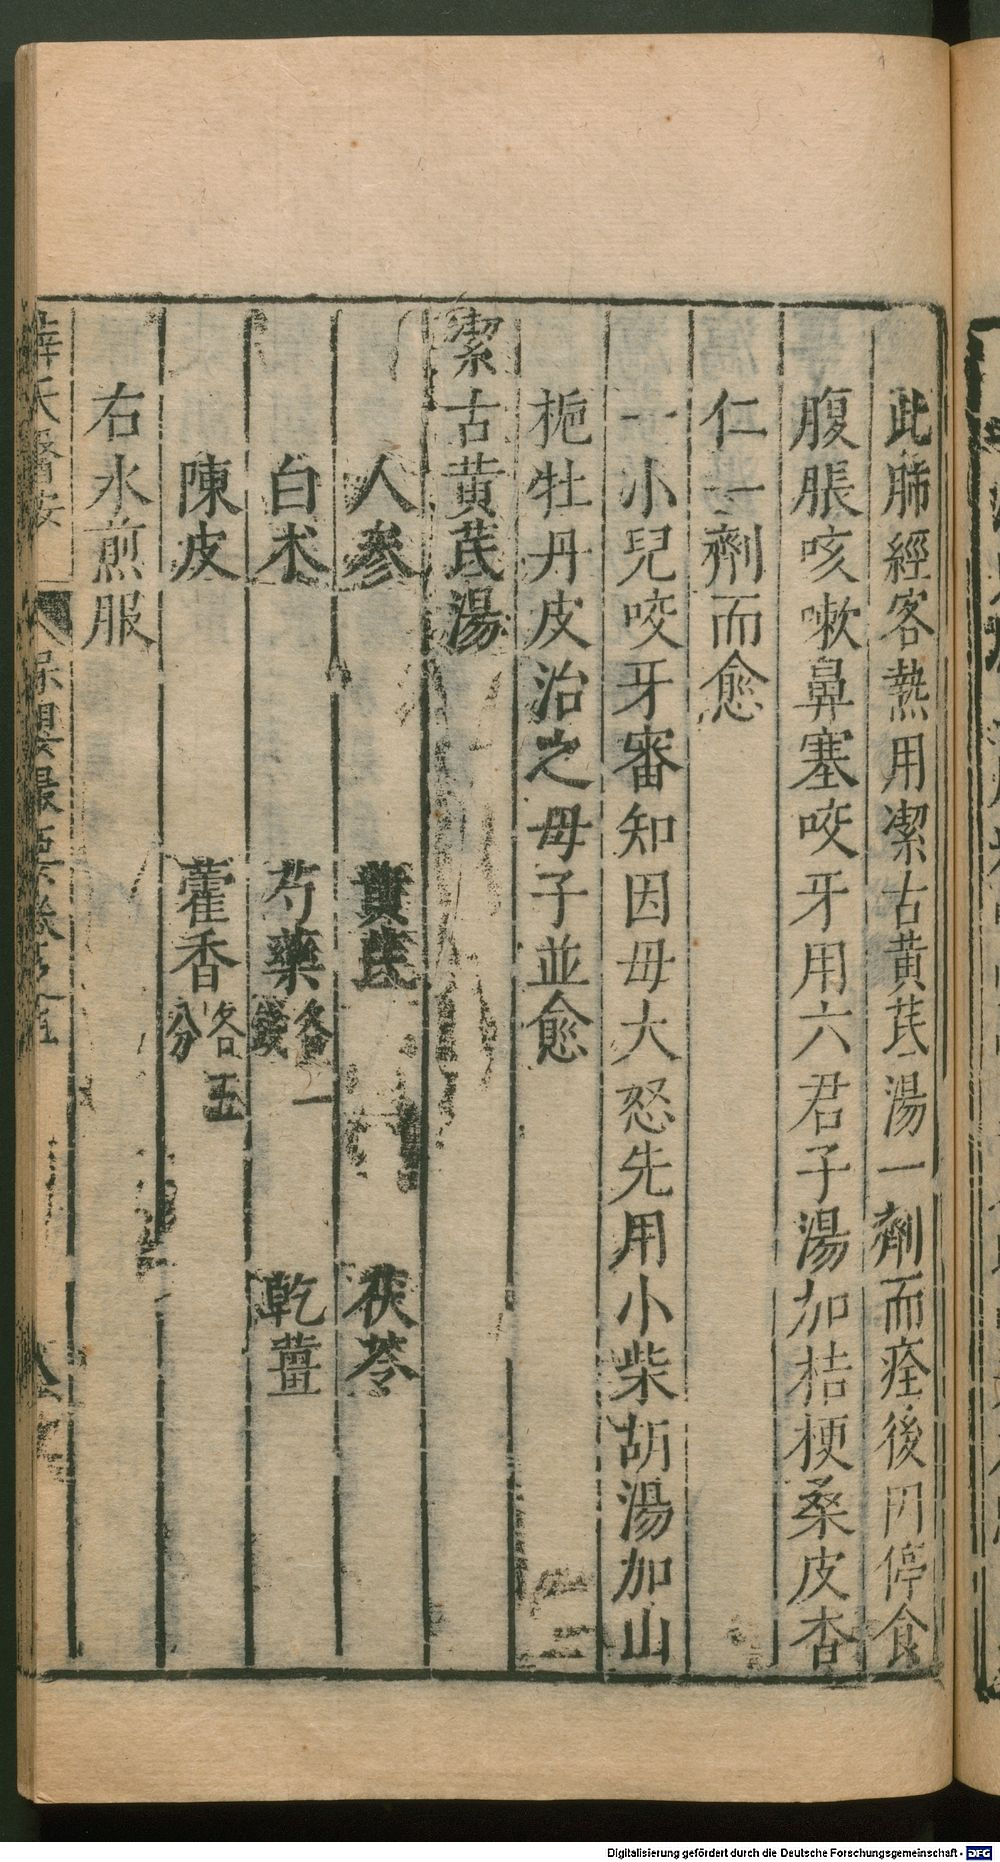 此肺經客熱用潔古黃茋湯一劑而痊後因停食
腹脹咳嗽鼻塞咬牙用六君子湯加桔梗桑皮杏
仁一劑而愈
一小兒咬牙審知因母大怒先用小柴胡湯加山
梔牡丹皮治之母子並愈
潔古黃茋湯
人參 黃茋 茯苓
白朮 芍藥各一錢 乾薑
陳皮 藿香各五分
右水煎服
薛氏醫按 保嬰最要卷之
Digitalisierung gefördert durch die Deutsche Forschungsgemeinschaft - DFG